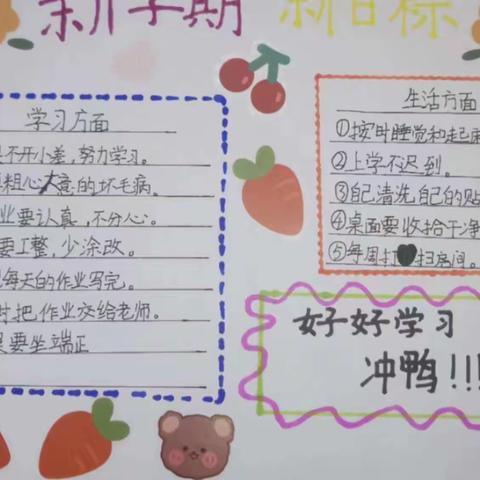 新学期 新目标
学习方面
不开小差,努力学习。
粗心大意的坏毛病。
业要认真,不分心。
要工整,少涂改。
每天的作业写完。
时把作业交给老师。
要坐端正
生活方面
①按时睡觉和起床
②上学不迟到。
③自己清洗自己的贴
④桌面要收拾干净
⑤每周打扫房间。
好好学习
冲鸭!!!